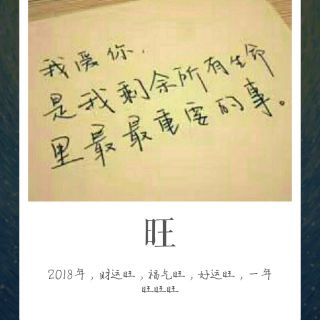 我愛你.
是我剩余所有生命
里最最重要的事。
旺
2018年，财运旺，福气旺，好运旺，一年
旺旺旺